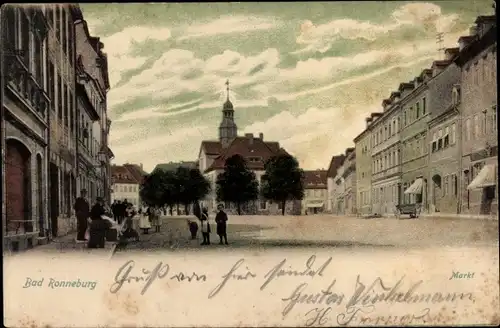 Bad Ronneburg.
Markt
Gruß von hier sendet
Gustav Winkelmann